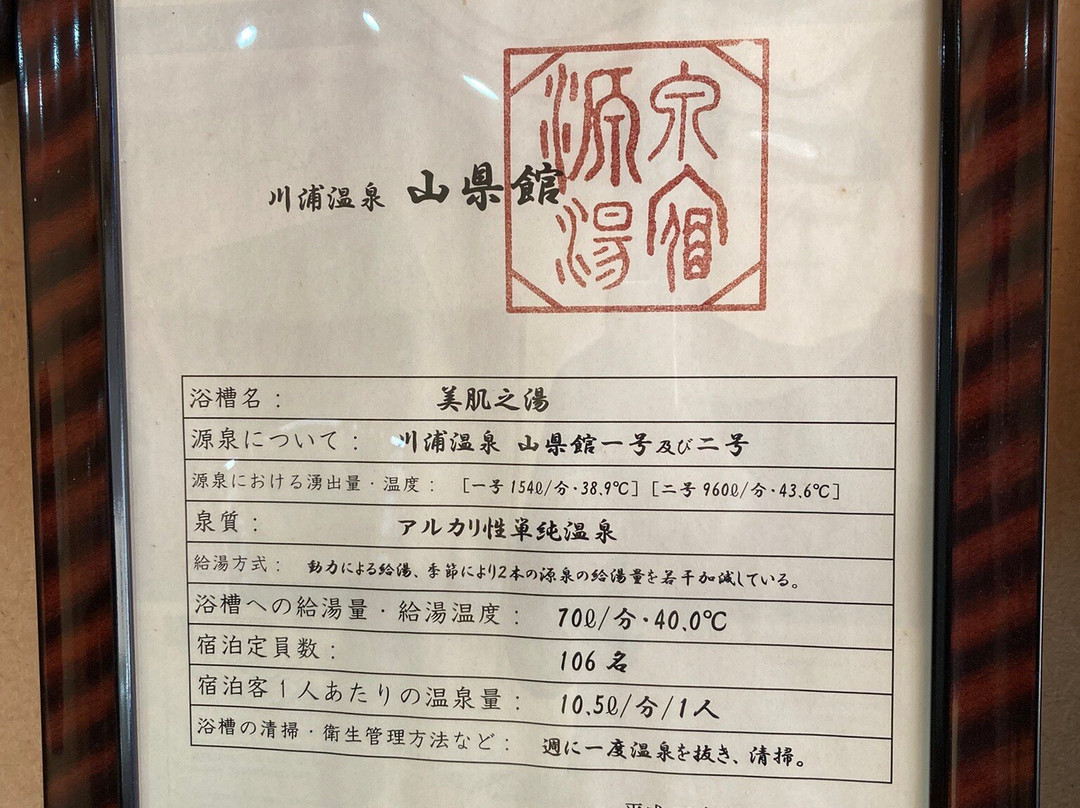 源泉
湯宿
川浦温泉 山県館
浴槽名： 美肌之湯
源泉について： 川浦温泉 山県館一号及び二号
源泉における湧出量・温度： [一号 154ℓ/分・38.9℃] [二号 960ℓ/分・43.6℃]
泉質： アルカリ性単純温泉
給湯方式： 動力による給湯、季節により2本の源泉の給湯量を若干加減している。
浴槽への給湯量・給湯温度： 70ℓ/分・40.0℃
宿泊定員数： 106 名
宿泊客1人あたりの温泉量： 10.5ℓ/分/1人
浴槽の清掃・衛生管理方法など： 週に一度温泉を抜き、清掃。